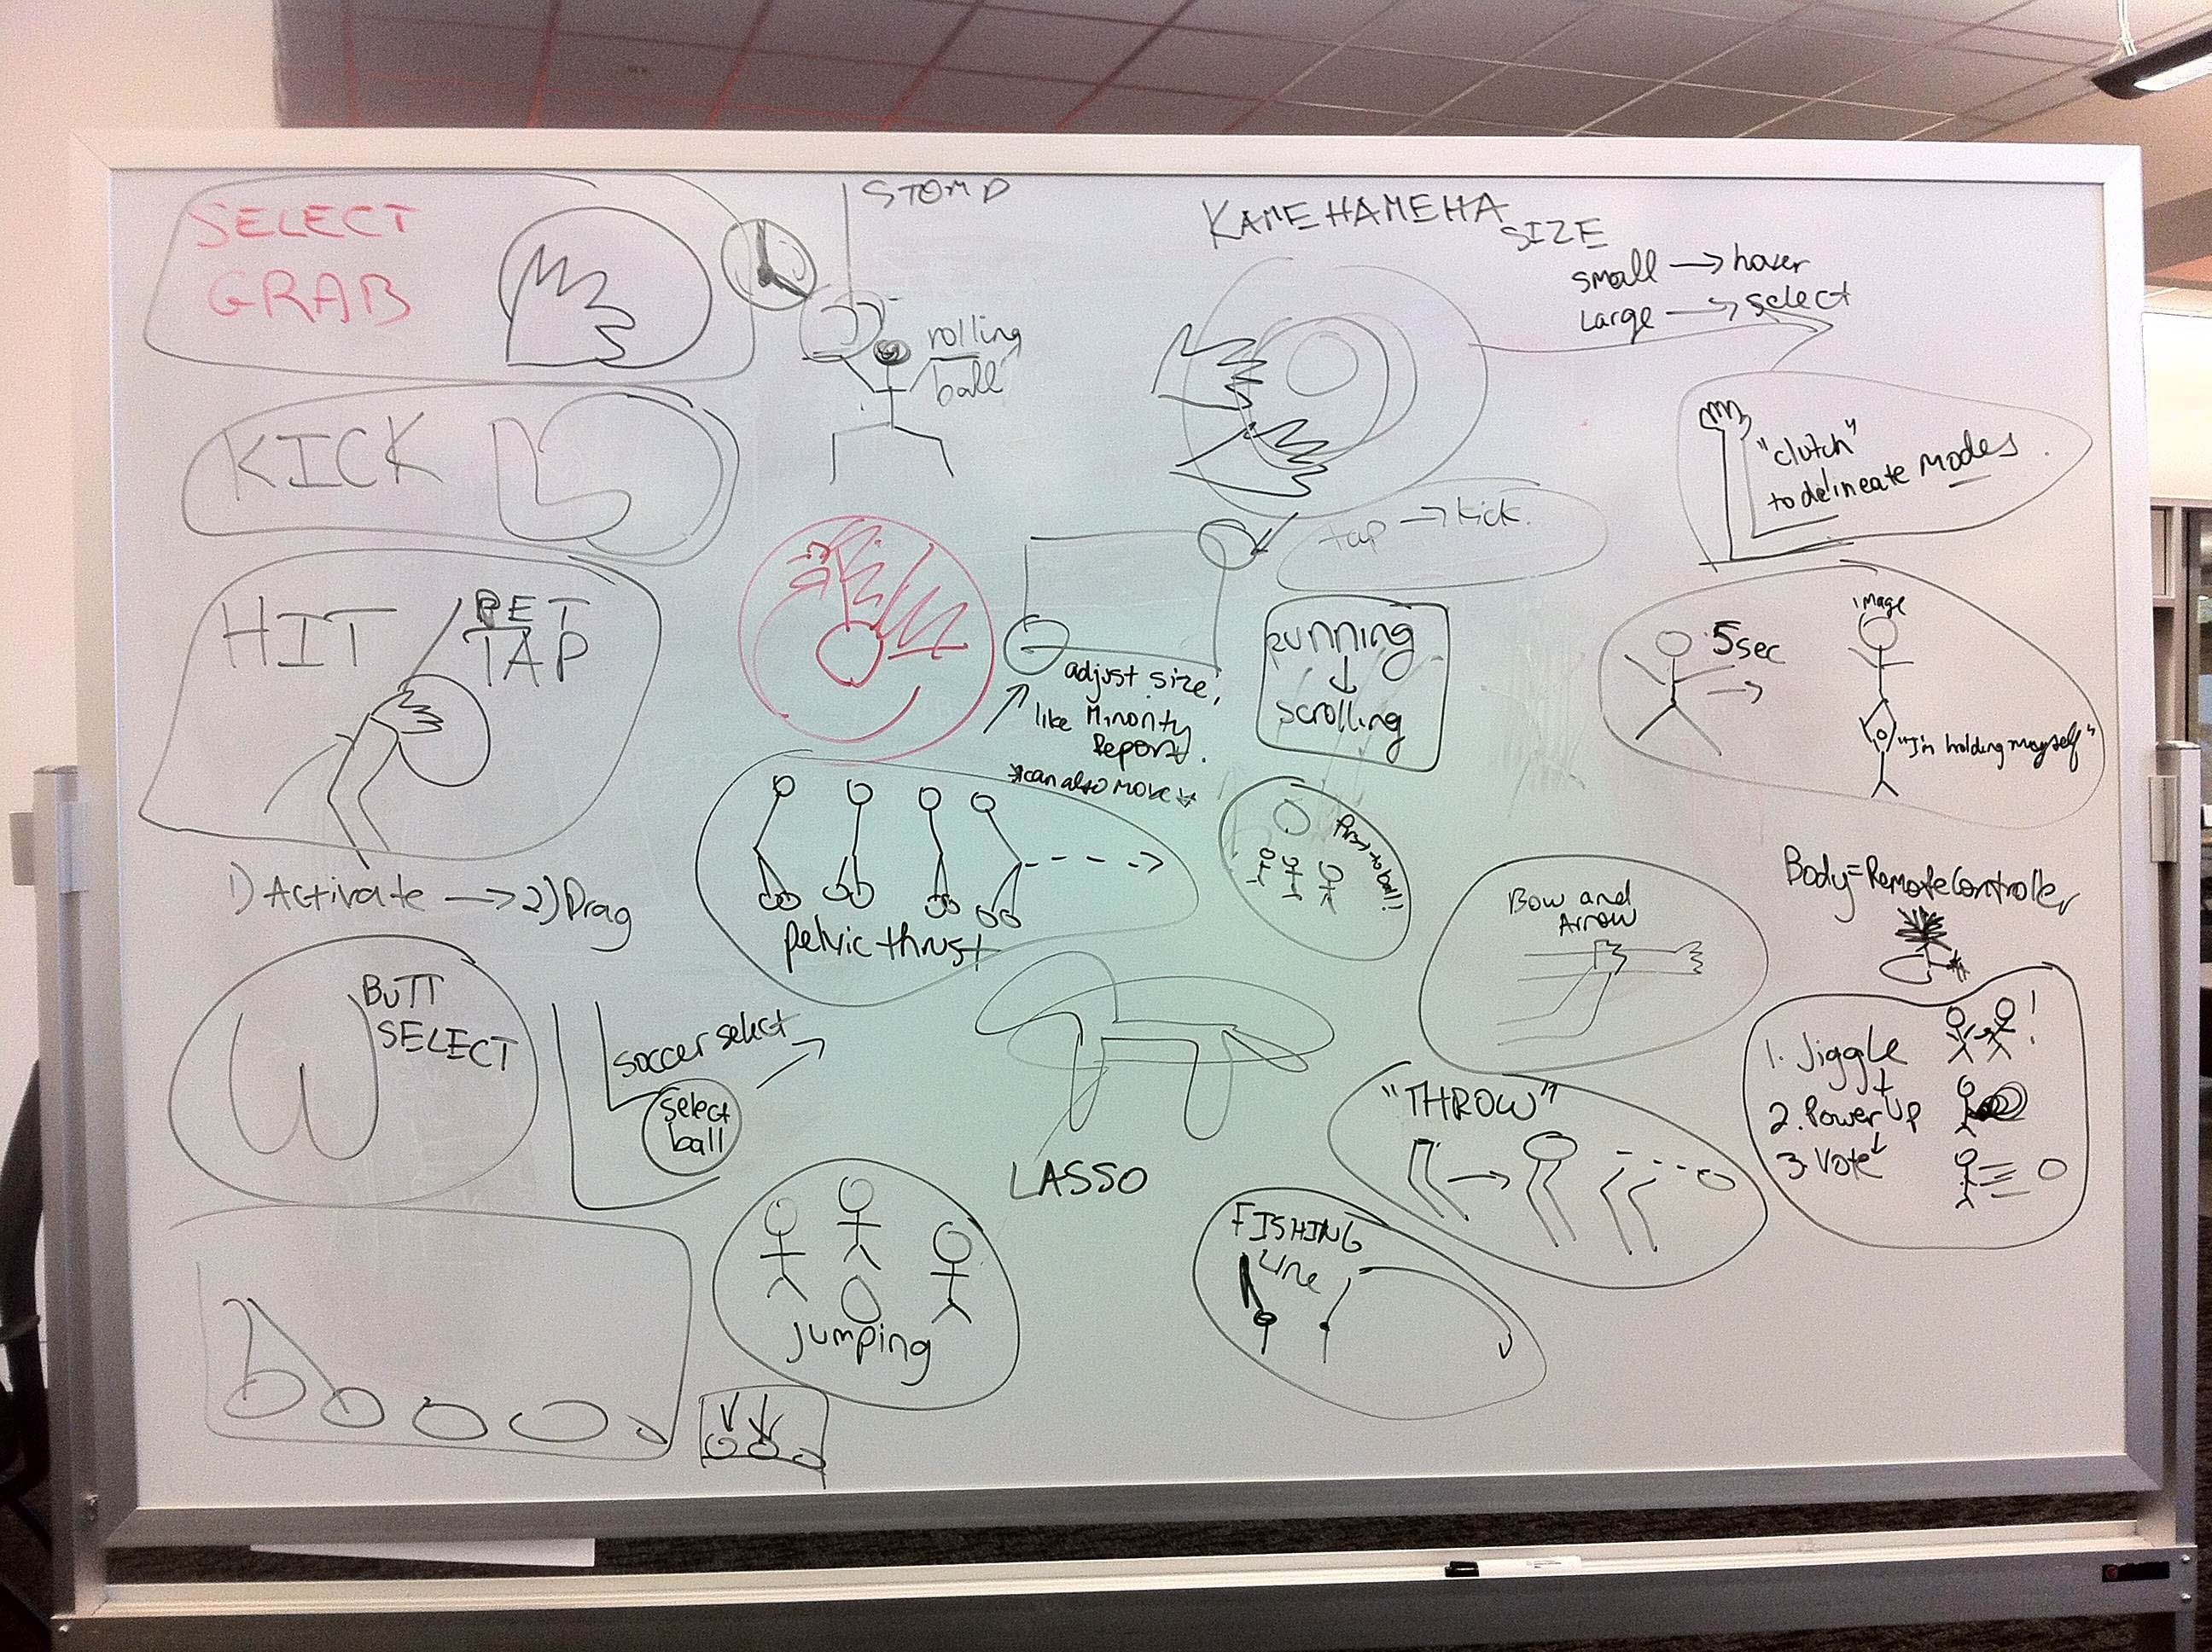 SELECT
GRAB
STOMP
rolling
ball
KAMEHAMEHA
SIZE
small → hover
Large → select
KICK
"clutch"
to delineate modes.
tap → kick.
HIT / PET
TAP
adjust size,
like Minority
Report.
*can also move*
running
↓
scrolling
5sec
image
"I'm holding mayself"
1) Activate → 2) Drag
pelvic thrust
Press to ball!!
Bow and
Arrow
Body=Remote Controller
BUTT
SELECT
soccer select
select
ball
LASSO
"THROW"
1. Jiggle
2. Power up
3. Vote
jumping
FISHING
Line